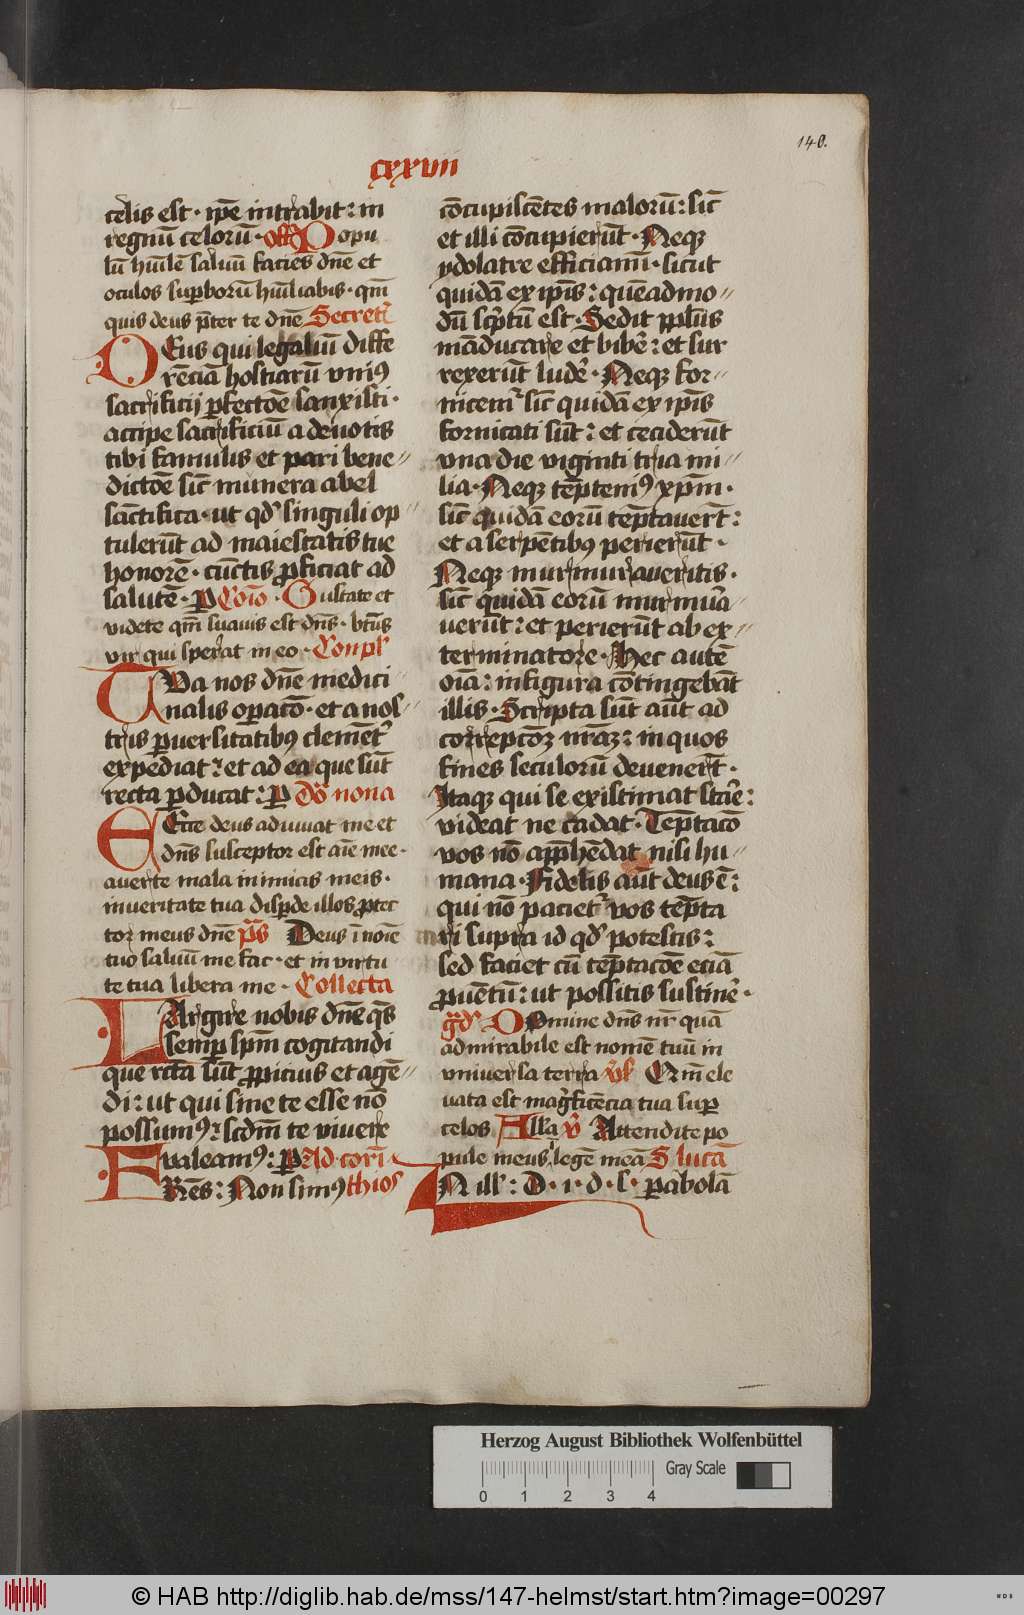 140.
cxxvii
celis est · ip̄e intrabit : in
regnū celorū · off̄ Popu
lū hūilē saluū facies dn̄e et
oculos suꝑborū hūiliabis · qm̄
quis deus p̄ter te dn̄e Secret̄
DEus qui legaliū diffe
rēciā hostiarū vniꝰ
sacrificij ꝑfectōe sanxisti ·
accipe sacrificiū a deuotis
tibi famulis et pari bene〃
dictōe sic̄ munera abel
sāctifica · ut qd̓ singuli op〃
tulerūt ad maiestatis tue
honorē · cūctis ꝓficiat ad
salutē · ꝑ Cōio · Gustate et
videte qm̄ suauis est dn̄s · bt̄us
vir qui sperat in eo · Conpl̓
TUa nos dn̄e medici
nalis oꝑacō · et a nos〃
tris ꝑuersitatibꝰ clemēt̓
expēdiat : et ad ea que sūt
recta ꝑducat : ꝑ dō nona
EEcce deus adiuuat me et
dn̄s susceptor est aīe mee ·
auerte mala inimicis meis ·
in ueritate tua disꝑde illos ꝓtec
tor meus dn̄e p̄s Deus ī noīe
tuo saluū me fac · et in virtu
te tua libera me · Collecta
LArgire nobis dn̄e q̄s
semꝑ sp̄m cogitandi
que rc̄ta sūt ꝓpicius et agē〃
di : ut qui sine te esse nō
possumꝰ : scdm̄ te viuere
valeamꝰ : ꝑ Ad · corī
FRēs : Non simꝰ thios
cōcupiscētes malorū : sic̄
et illi cōcupierūt · Neqꝫ
ydolatre efficiamī · sicut
quidā ex ip̄is : quēadmo〃
dū sc̓ptū est · Sedit pp̄lus
māducare et bibē : et sur
rexerūt lude̓ · Neqꝫ for〃
nicem̓ sic̄ quidā ex ip̄is
fornicati sūt : et ceciderūt
vna die viginti tria mi〃
lia · Neqꝫ tēptemꝰ xp̄m ·
sic̄ quidā eorū tēptauert̄ :
et a serpētibꝰ perierūt ·
Neqꝫ murmuraueritis ·
sic̄ quidā eorū murmua̓
uerūt : et perierūt ab ex〃
terminatore · Hec autē
oīa : in figura cōtingebāt
illis · Scripta sūt aūt ad
correpcōꝫ nr̄aꝫ : in quos
fines seculorū deuenert̄ ·
Itaqꝫ qui se existimat stāe :
videat ne cadat · Tēptacō
vos nō app̄hēdat nisi hu〃
mana · Fidelis aūt deus ē :
qui nō paciet̓ vos tēpta
ri supra id qd̓ potestis :
sed faciet cū tēptacōe eciā
ꝓuētū : ut possitis sustine̓ ·
gd̓ Domine dn̄s nr̄ quā
admirabile est nomē tuū in
vniuersa terra v̓s Qm̄ ele
uata est mag̓ficēcia tua suꝑ
celos All̄a v̓ Attendite po
pule meus legē meā S lucā
IN ill̓ : D · i · d · s̓ · ꝑabolā
Herzog August Bibliothek Wolfenbüttel
0 1 2 3 4
Gray Scale
© HAB http://diglib.hab.de/mss/147-helmst/start.htm?image=00297